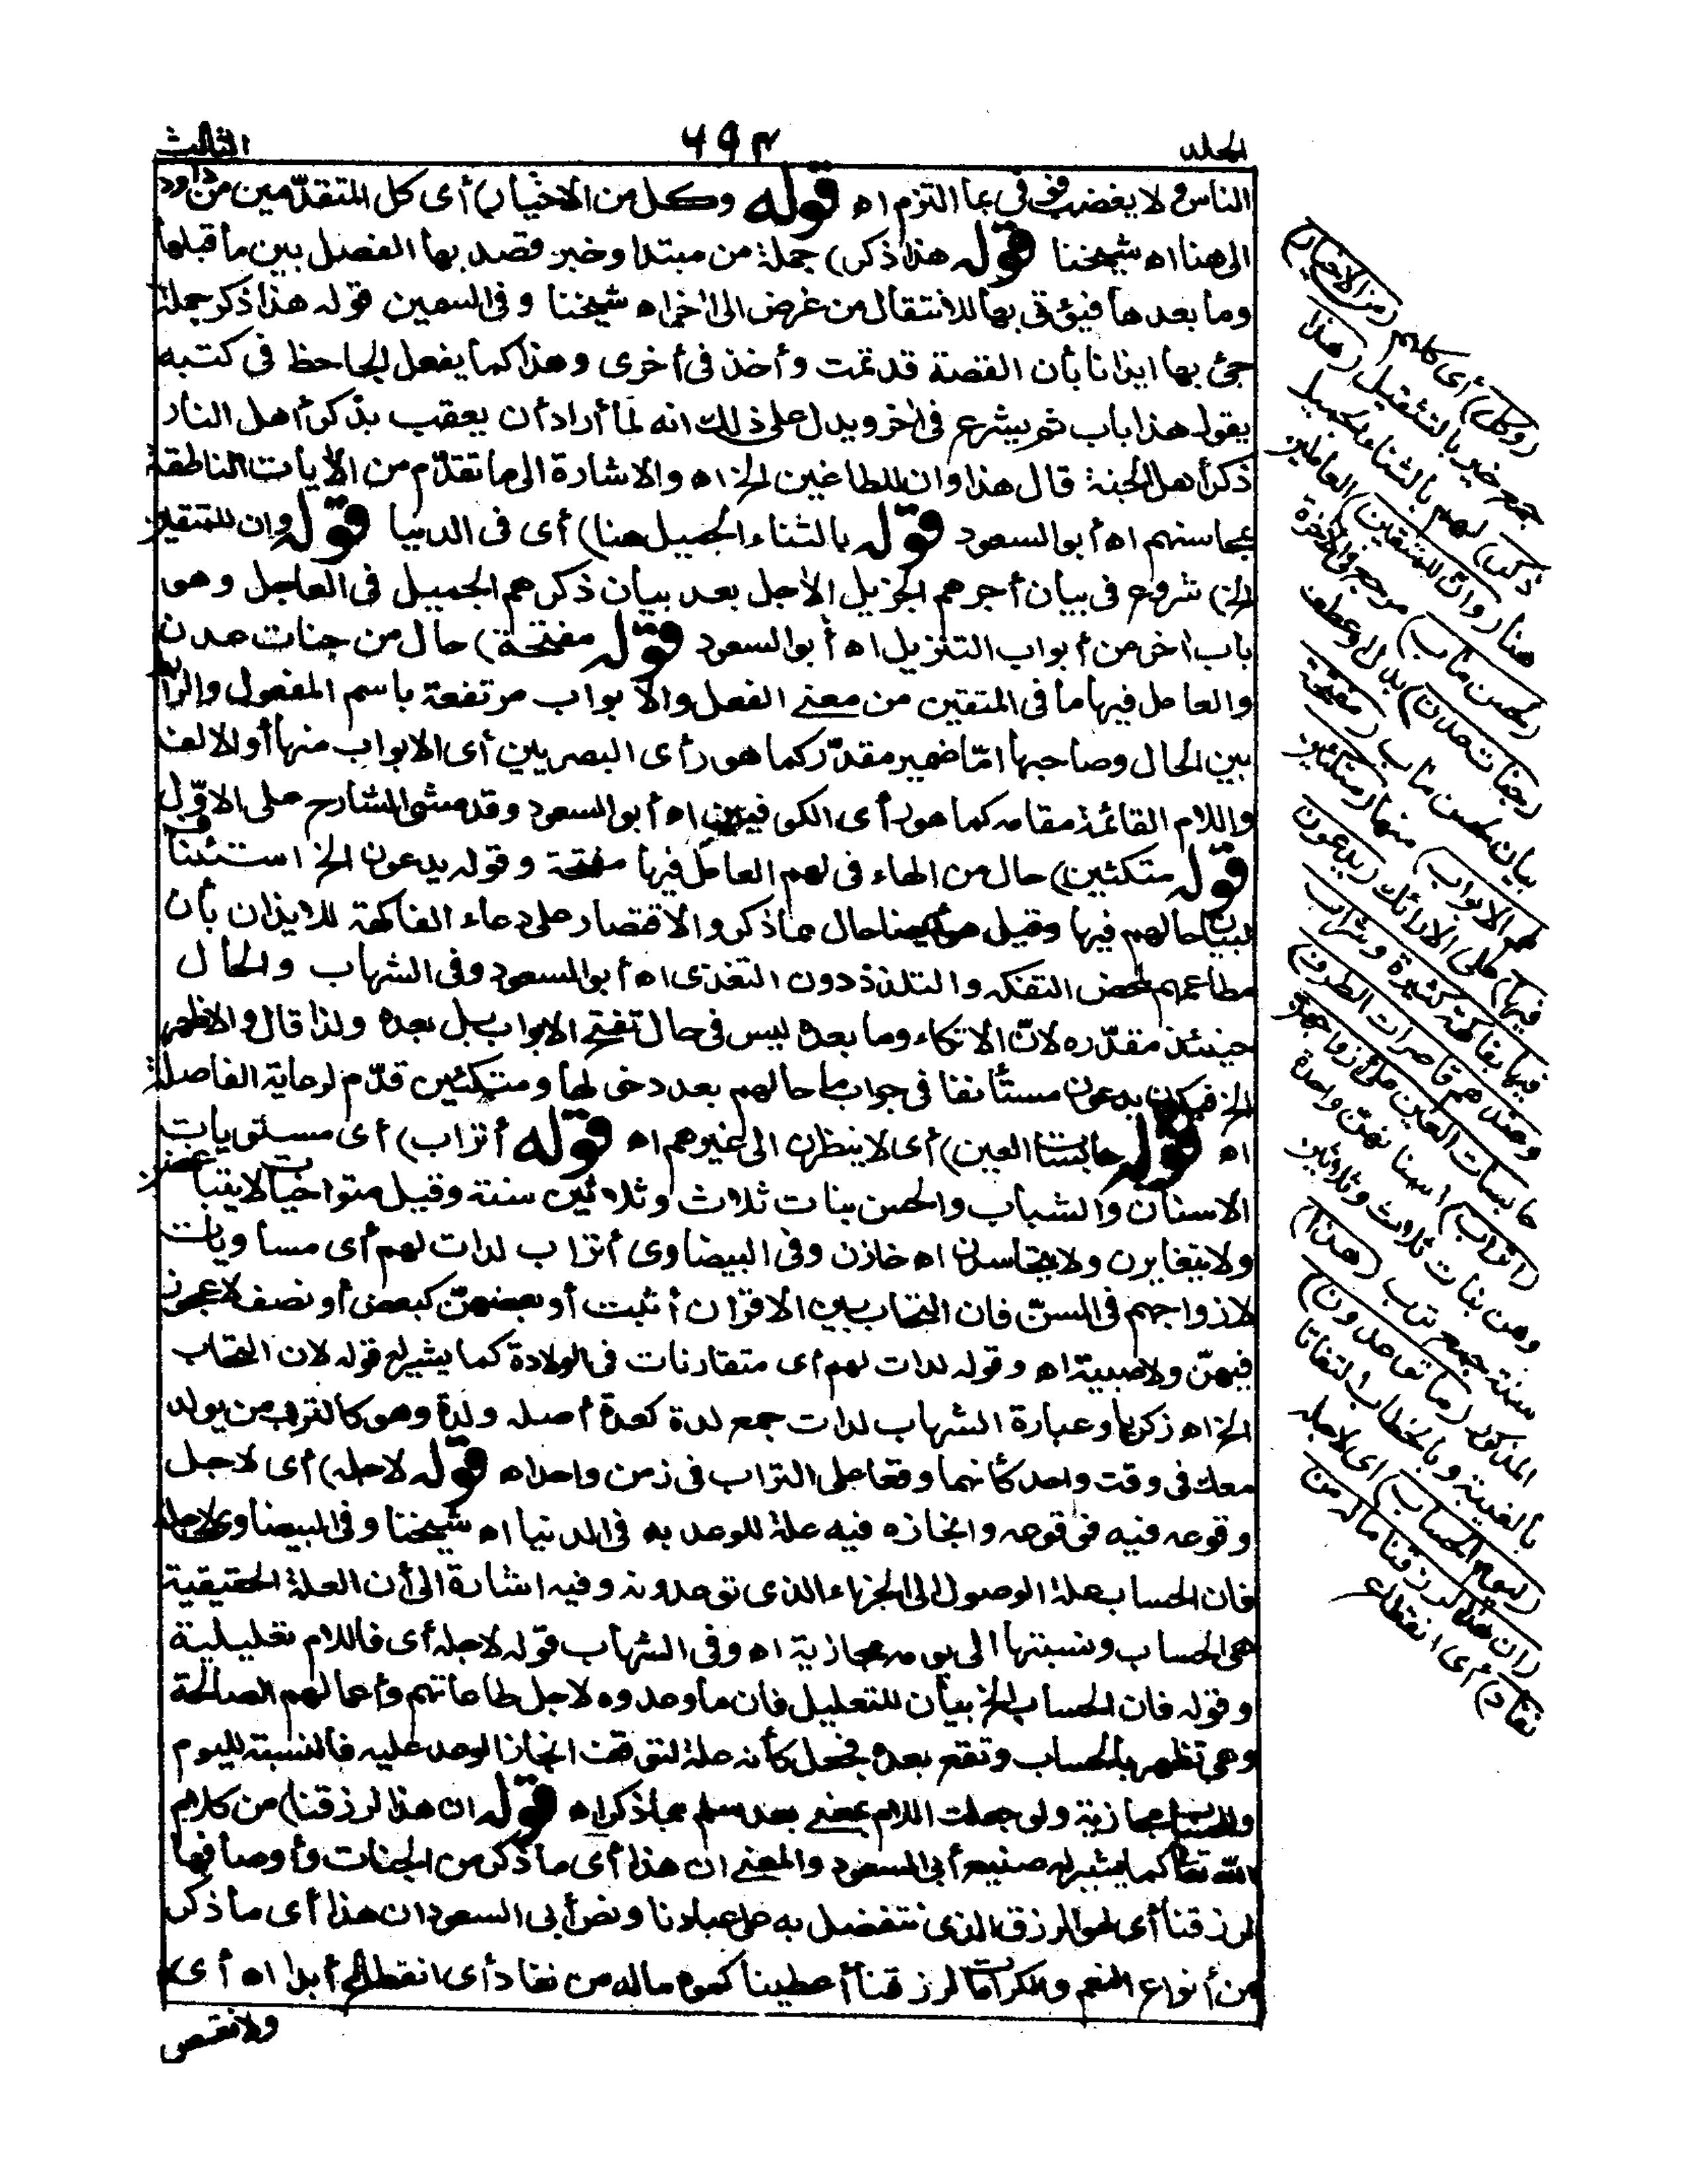 المجلد
٦٩٣
الثالث
الناس ولا يغضب فوفى بما التزم اه قوله وكل من الاخيار) أى كل المتقدّمين من داود
الى هنا اه شيخنا قوله هذا ذكر) جملة من مبتدا وخبر قصد بها الفصل بين ما قبلها
وما بعدها فيؤتى بها للانتقال من غرض الى اخر اه شيخنا وفى السمين قوله هذا ذكر جملة
جئ بها ايذانا بأن القصة قد تمت وأخذ فى أخرى وهذا كما يفعل الجاحظ فى كتبه
يقول هذا باب ثم يشرع فى اخر ويدل على ذلك انه لما أراد أن يعقب بذكر أهل النار
ذكر أهل الجنة قال هذا وان للطاغين الخ اه والاشارة الى ما تقدّم من الأيات الناطقة
بمحاسنهم اه أبو السعود قوله بالثناء الجميل هنا) أى فى الدنيا قوله وان للمتقين
الخ) شروع فى بيان أجرهم الجزيل الأجل بعد بيان ذكرهم الجميل فى العاجل وهو
باب اخر من أبواب التنزيل اه أبو السعود قوله مفتحة) حال من جنات عدن
والعامل فيها ما فى المتقين من معنى الفعل والأبواب مرتفعة باسم المفعول والرابط
بين الحال وصاحبها امّا ضمير مقدّر كما هو رأى البصريين أى الابواب منها أو الالف
واللام القائمة مقامه كما هو رأى الكوفيين اه أبو السعود وقد مشى الشارح على الاوّل
قوله متكئين) حال من الهاء فى لهم العامل فيها مفتحة وقوله يدعون الخ استئناف
لبيان حالهم فيها وقيل هو أيضا حال مما ذكر والاقتصار على دعاء الفاكهة للايذان بأن
مطاعمهم لمحض التفكه والتلذذ دون التغذى اه أبو السعود وفى الشهاب والحال
حينئذ مقدّره لانّ الاتكاء وما بعده ليس فى حال تفتح الابواب بل بعده ولذا قال والاظهر
الخ فيكون يدعون مستأنفا فى جواب ما حالهم بعد دخولها ومتكئين قدّم لرعاية الفاصلة
اه قوله حابسات العين) أى لا ينظرن الى غيرهم اه قوله أتراب) أى مستويات
الاسنان والشباب والحسن بنات ثلاث وثلاثين سنة وقيل متواخيات لا يتباغضن
ولا يتغايرن ولا يتحاسدن اه خازن وفى البيضاوى أتراب لدات لهم أى مساويات
لازواجهم فى السنّ فان التحاب بين الاقران أثبت أو بعضهنّ كبعض أو نصف لا عجوز
فيهنّ ولا صبية اه وقوله لدات لهم أى متقارنات فى الولادة كما يشير له قوله لان التحاب
الخ اه زكريا وعبارة الشهاب لدات جمع لدة كعدة أصله ولدة وهو كالترب من يولد
معك فى وقت واحد كأنهما وقعا على التراب فى زمن واحد اه قوله لاجله) أى لاجل
وقوعه فيه فوقوعه وانجازه فيه علة للوعد به فى الدنيا اه شيخنا وفى البيضاوى لاجله
فان الحساب علة الوصول الى الجزاء الذى توعدونه وفيه اشارة الى أن العلة الحقيقية
هى الحساب ونسبتها الى يومه مجازية اه وفى الشهاب قوله لاجله أى فاللام تعليلية
وقوله فان الحساب الخ بيان للتعليل فان ما وعدوه لاجل طاعاتهم وأعمالهم الصالحة
وهى تظهر بالحساب وتقع بعده فجعل كأنه علة لتوقف انجاز الوعد عليه فالنسبة لليوم
والحساب مجازية ولو جعلت اللام بمعنى بعد سلم مما ذكر اه قوله ان هذا لرزقنا) من كلام
الله تعالى كما يشير له صنيع أبى السعود والمعنى ان هذا أى ما ذكر من الجنات وأوصافها
لرزقنا أى لهو الرزق الذى نتفضل به على عبادنا ونص أبى السعود ان هذا أى ما ذكر
من أنواع النعم والكرامات لرزقنا أعطيناكموه ماله من نفاد أى انقطاع أبدا اه أى
ولا نقص
(وكل) أى كلهم (من الاخيار)
جمع خير بالتثقيل (هذا
ذكر) لهم بالثناء الجميل
هنا (وان للمتقين) الشاملين لهم
(لحسن ماب) مرجع فى الاخرة
(جنات عدن) بدل او عطف
بيان لحسن ماب (مفتحة
لهم الابواب) منها (متكئين
فيها) على الارائك (يدعون
فيها بفاكهة كثيرة وشراب
وعندهم قاصرات الطرف)
حابسات العين على ازواجهن
(اتراب) اسنانهن واحدة
وهن بنات ثلاث وثلاثين
سنة جمع ترب (هذا)
المذكور (ما توعدون)
بالغيبة وبالخطاب التفاتا
(ليوم الحساب) اى لاجله
(ان هذا لرزقنا ماله من
نفاد) أى انقطاع